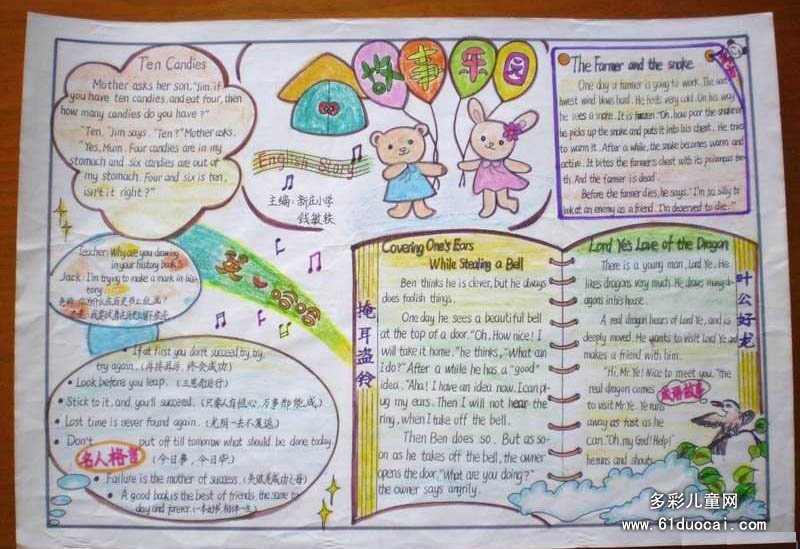 Ten Candies
Mother asks her son, "Jim, if
you have ten candies, and eat four, then
how many candies do you have?"
"Ten," Jim says. "Ten?" Mother asks.
"Yes, Mum. Four candies are in my
stomach and six candies are out of
my stomach. Four and six is ten,
isn't it right?"
故事乐园
English Story
主编:新庄小学
钱敏轶
The Farmer and the snake
One day a farmer is going to work. The nort
hwest wind blows hard. He feels very cold. On his way
he sees a snake. It is frozen. "Oh, how poor the snake is"
he picks up the snake and puts it into his chest. He tries
to warm it. After a while, the snake becomes warm and
active. It bites the farmer's chest with its poisonous tee
th. And the farmer is dead.
Before the farmer dies, he says, "I'm so silly to
look at an enemy as a friend. I'm deserved to die."
Teacher: Why are you drawing
in your history book?
Jack: I'm trying to make a mark in his-
tory.
If at first you don't succeed try, try,
try again. (再接再厉,终会成功)
Look before you leap. (三思而后行)
Stick to it, and you'll succeed. (只要人有恒心,万事都能成)
Lost time is never found again. (光阴一去不复返)
Don't put off till tomorrow what should be done today.
(今日事,今日毕)
名人格言
Failure is the mother of success. (失败是成功之母)
A good book is the best of friends, the same to-
day and forever.
掩耳盗铃
Covering One's Ears
While Stealing a Bell
Ben thinks he is clever, but he always
does foolish things.
One day he sees a beautiful bell
at the top of a door. "Oh, How nice! I
will take it home." he thinks, "What can
I do?" After a while he has a "good"
idea. "Aha! I have an idea now. I can pl-
ug my ears. Then I will not hear the
ring, when I take off the bell.
Then Ben does so. But as so-
on as he takes off the bell, the owner
opens the door. "What are you doing?"
the owner says angrily.
Lord Ye's Love of the Dragon
There is a young man, Lord Ye. He
likes dragons very much. He draws many dr-
agons in his house.
A real dragon hears of Lord Ye, and is
deeply moved. He wants to visit Lord Ye and
makes a friend with him.
"Hi, Mr. Ye! Nice to meet you." the
real dragon comes
to visit Mr. Ye. Ye runs
away as fast as he
can. "Oh, my God! Help!"
he runs and shouts.
成语故事
叶公好龙
多彩儿童网
www.61duocai.com